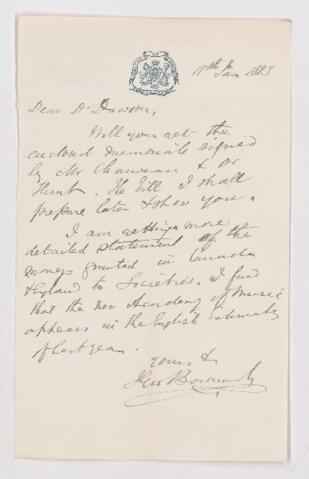 17th Jan 1883
Dear Dr Dawson,
Will you get the
enclosed memorials signed
by Mr Chauveau & Dr
Hunt. The bill I shall
prepare later & show you.
I am getting a more
detailed statement of the
moneys granted in Canada
& England to Societies. I find
that the new Academy of Music
appears in the English estimates
of last year.
Yours &c
Jno Bourinot